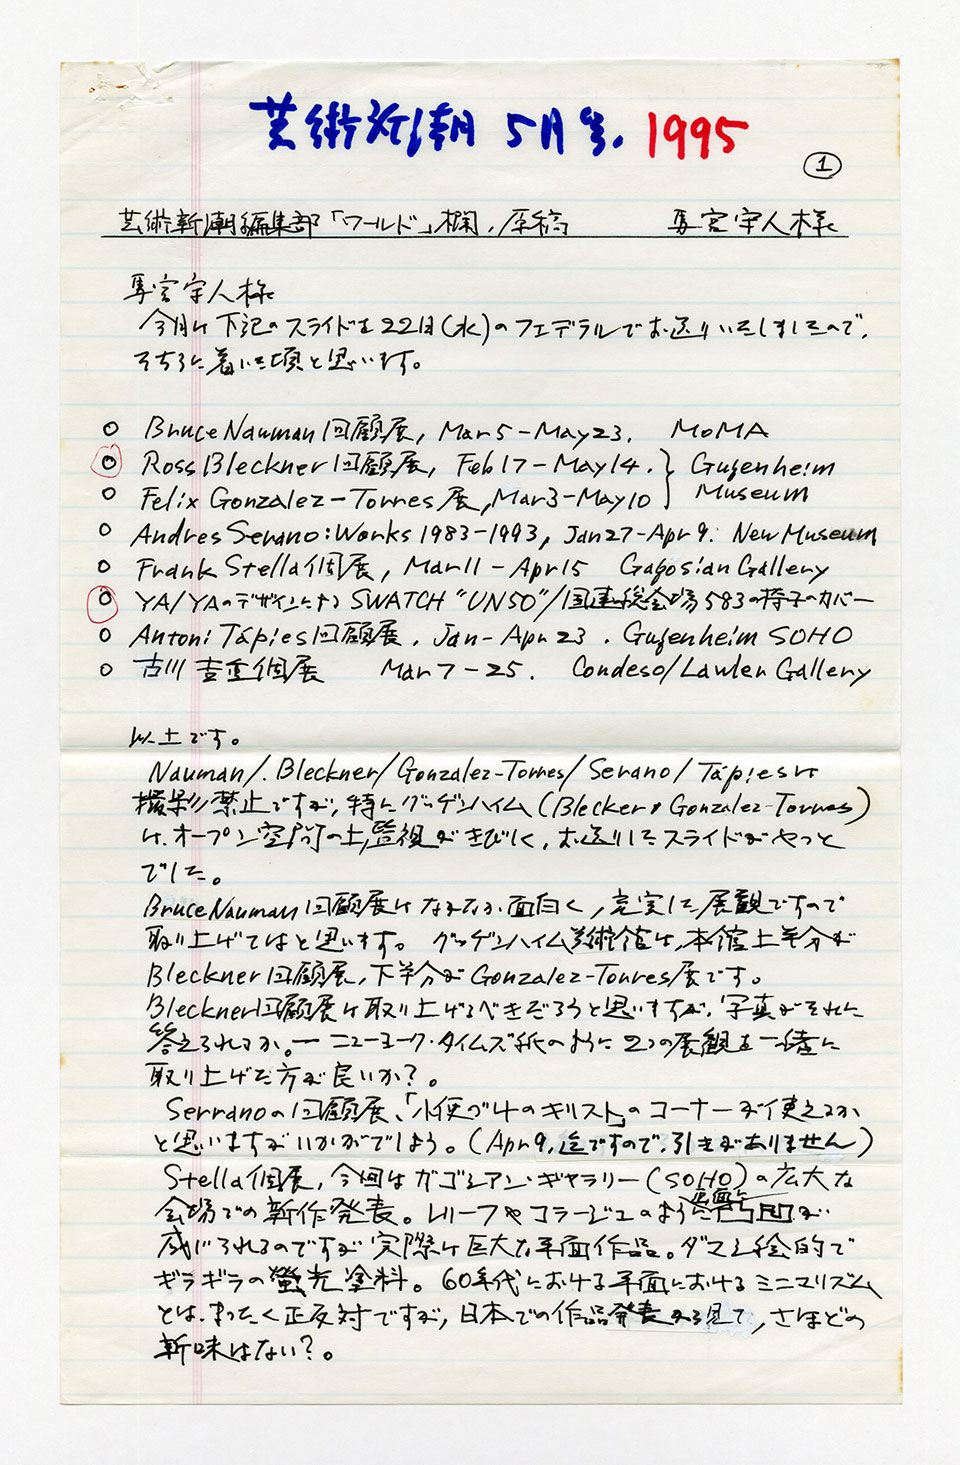 芸術新潮 5月号. 1995
1
芸術新潮編集部「ワールド」欄.原稿 馬宮守人様
馬宮守人様
今月は下記のスライドを22日(水)のフェデラルでお送りいたしましたので,
そちらに着いた頃と思います。
○ Bruce Nauman 回顧展, Mar 5-May 23. MoMA
○ Ross Bleckner 回顧展, Feb 17-May 14. } Gugenheim
○ Felix Gonzalez-Torres 展, Mar 3-May 10 } Museum
○ Andres Serano: Works 1983-1993, Jan 27-Apr 9. New Museum
○ Frank Stella 個展, Mar 11 - Apr 15 Gagosian Gallery
○ YA/YAのデザインによる SWATCH "UN50"/国連総会場 583の椅子のカバー
○ Antoni Tápies 回顧展. Jan-Apr 23. Gugenheim SOHO
○ 古川吉重個展 Mar 7-25. Condeso/Lawler Gallery
以上です。
Nauman/. Bleckner/Gonzalez-Torres/Serano/Tápiesは
撮影禁止ですが,特にグッゲンハイム(Blecker, Gonzalez-Torres)
は,オープン空間の上,監視がきびしく,お送りしたスライドがやっと
でした。
Bruce Nauman 回顧展はなかなか面白く,充実した展観ですので
取り上げてはと思います。グッゲンハイム美術館は,本館上半分が
Bleckner 回顧展,下半分が Gonzalez-Torres 展です。
Bleckner 回顧展は取り上げるべきだろうと思いますが,写真がそれに
答えられるか。ー ニューヨーク・タイムズ紙のように 2つの展観を一緒に
取り上げた方が良いか?。
Serranoの回顧展、「小便づけのキリスト」のコーナーが使えるか
と思いますがいかがでしょう。(Apr 9,迄ですので,引きがありません)
Stella個展,今回はガゴシアン・ギャラリー(SOHO)の広大な
会場での新作発表。レリーフやコラージュのように画面に凸凹が
感じられるのですが実際は巨大な平面作品。ダマシ絵的で
ギラギラの螢光塗料。60年代における平面におけるミニマリズム
とは,まったく正反対ですが,日本での作品発表から見て,さほどの
新味はない?。